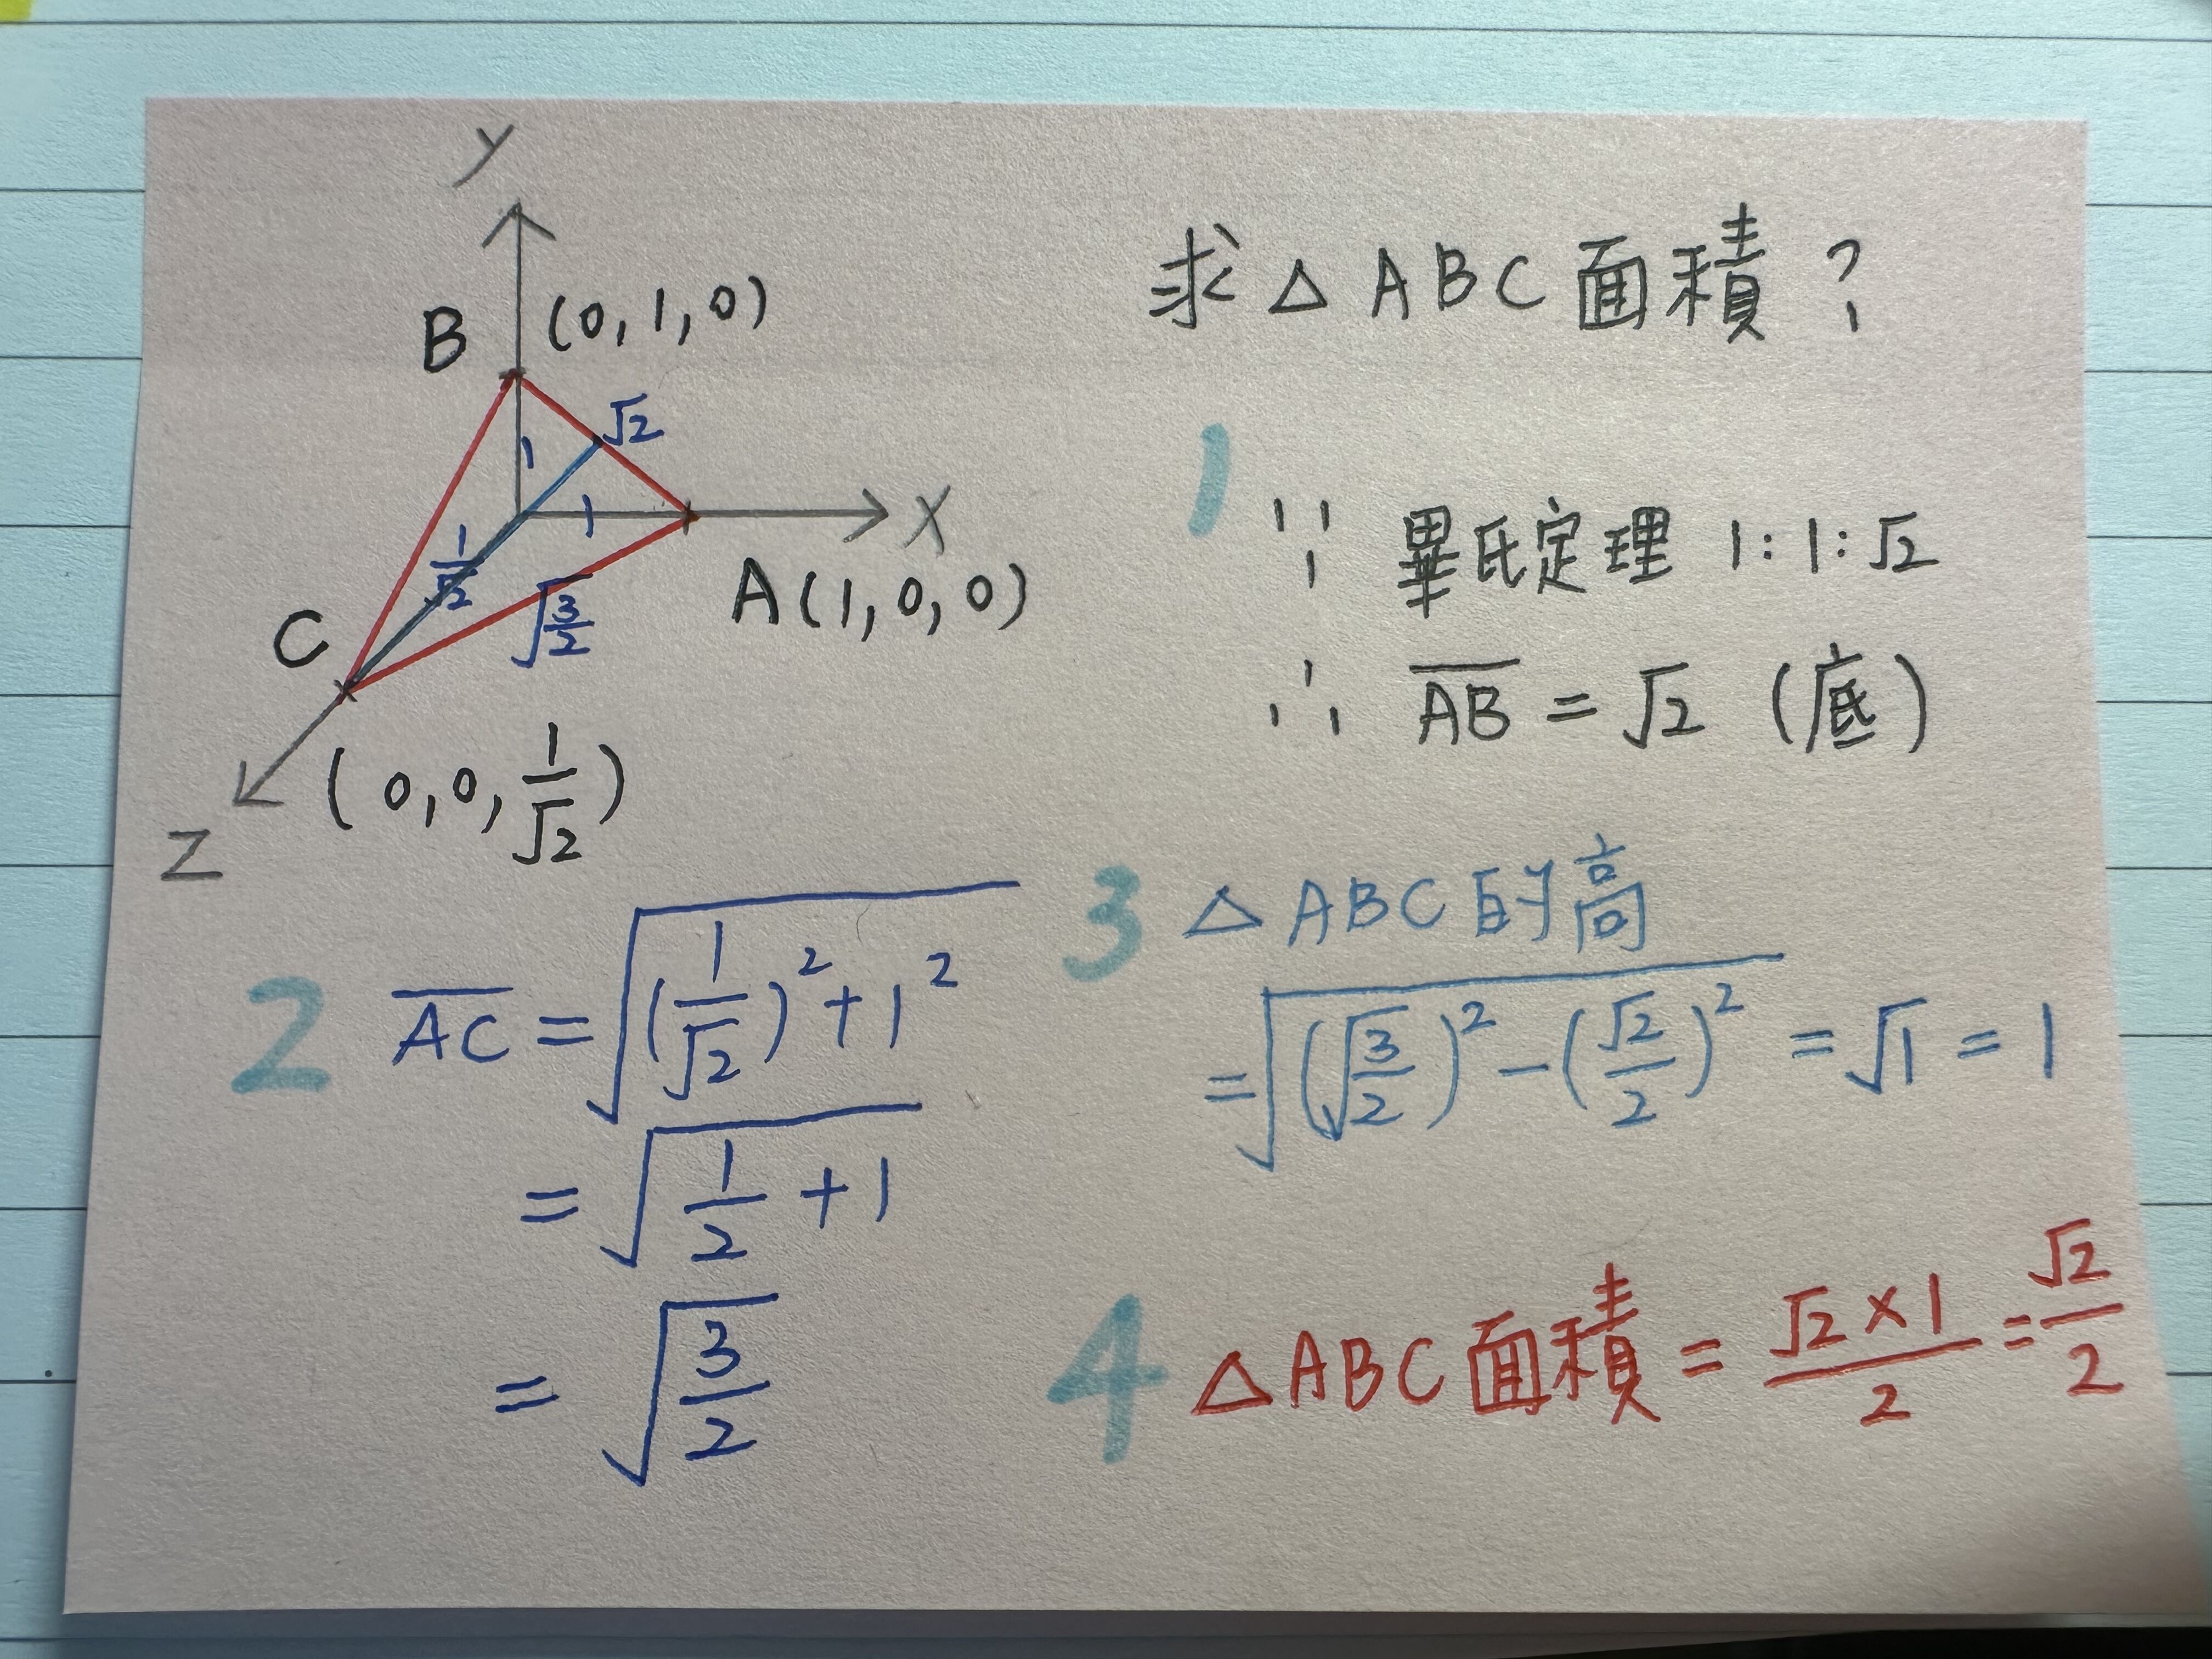 Y
B (0, 1, 0)
√2
1
1
X
1/√2
√(3/2)
A(1, 0, 0)
C
(0, 0, 1/√2)
Z
求△ABC面積?
1
∵ 畢氏定理 1:1:√2
∴ A̅B̅ = √2 (底)
2
A̅C̅ = √((1/√2)² + 1²)
= √(1/2 + 1)
= √(3/2)
3 △ABC的高
= √((√(3/2))² - (√2/2)²) = √1 = 1
4 △ABC面積 = (√2 × 1)/2 = √2/2